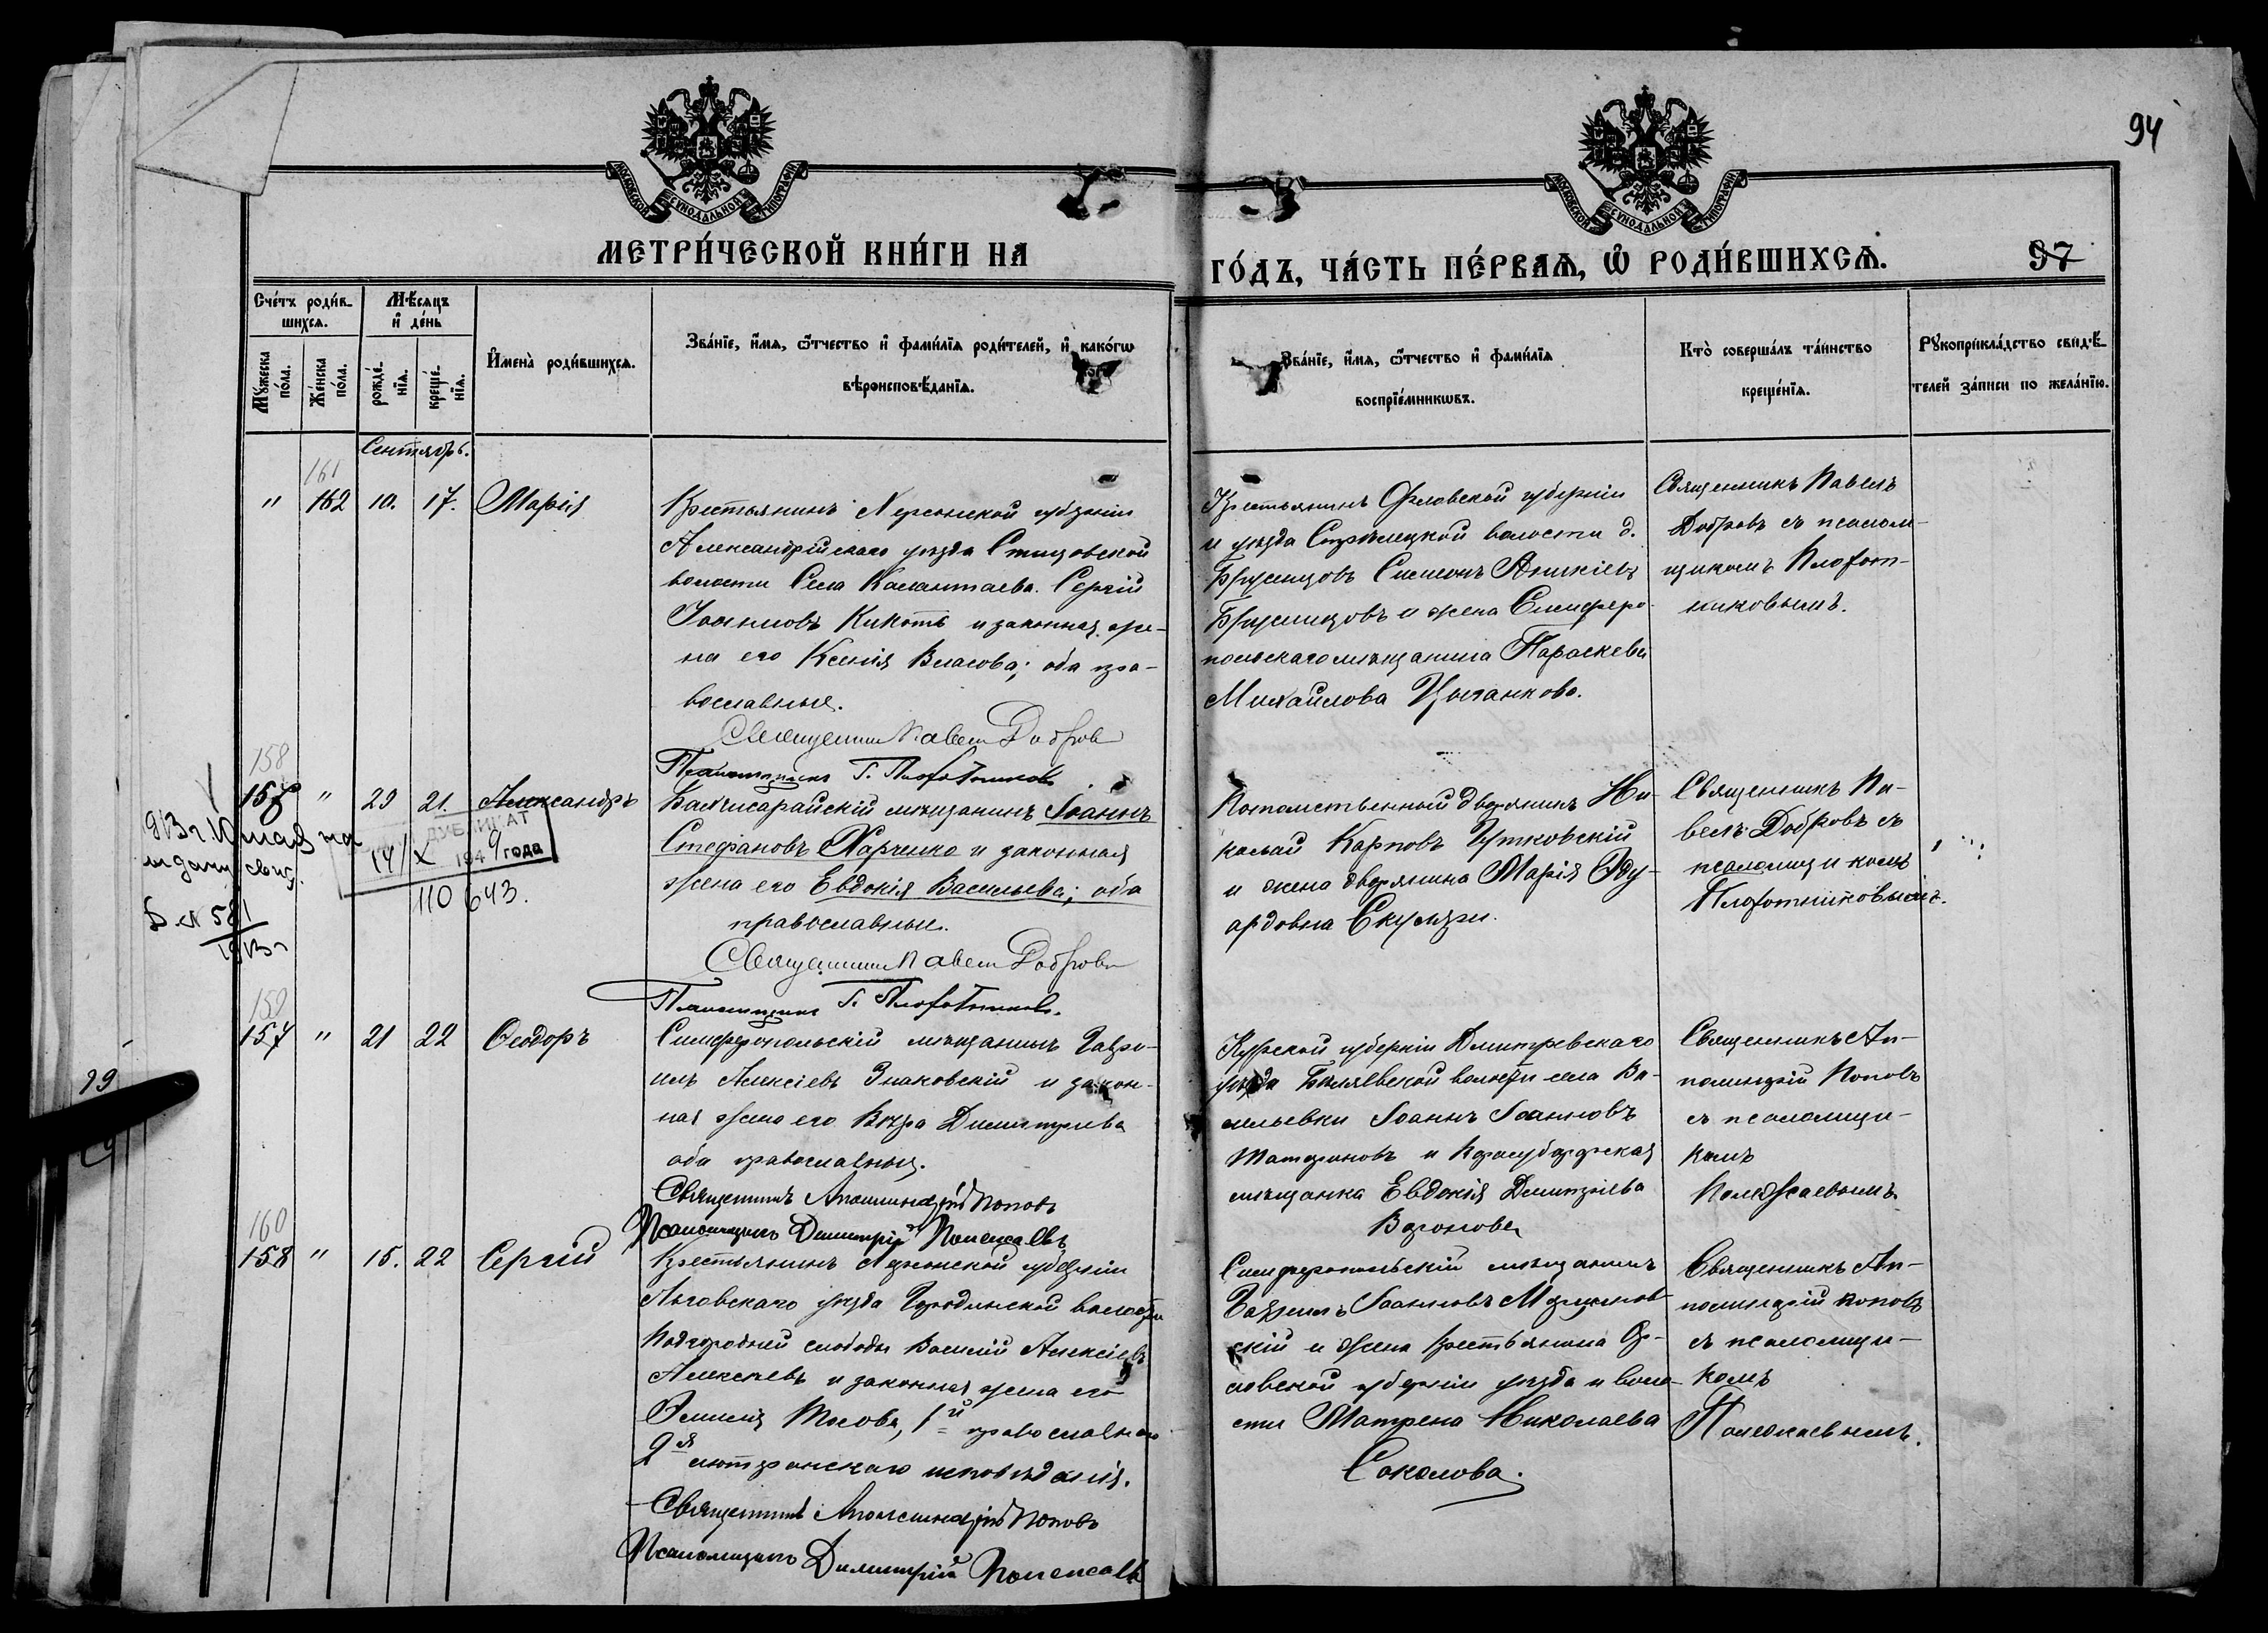 94
МОСКОВСКОЙ СѴНОДАЛЬНОЙ ТИПОГРАФІИ
МОСКОВСКОЙ СѴНОДАЛЬНОЙ ТИПОГРАФІИ
МЕТРИ́ЧЕСКОЙ КНИ́ГИ НА
ГО́ДЪ, ЧА́СТЬ ПЕ́РВАѦ, Ѡ҆ РОДИ́ВШИХСѦ.
97
Сче́тъ роди́в-
шихсѧ.
Мѣ́сѧцъ
и҆ де́нь
Мꙋ́жеска
по́ла.
Же́нска
по́ла.
рожде́-
нїѧ.
креще́-
нїѧ.
И҆мена̀ роди́вшихсѧ.
Зва́нїе, и҆́мѧ, ѻ҆́тчество и҆ фами́лїѧ роди́телей, и҆ како́гѡ
вѣроисповѣ́данїѧ.
Зва́нїе, и҆́мѧ, ѻ҆́тчество и҆ фами́лїѧ
воспрїе́мникѡвъ.
Кто̀ соверша́лъ та́инство
креще́нїѧ.
Рꙋкоприкла́дство свидѣ́-
телей за́писи по жела́нїю.
Сентябрь.
161
" 162 10. 17. Марія
Крестьянинъ Херсонской губерніи
Александрійскаго уѣзда
волости Села Калантаева. Сергій
Іоанновъ Кикоть и законная же-
на его Ксенія Власова; оба пра-
вославные.
Священникъ Павелъ Добровъ
Псаломщикъ Г. Плохотниковъ
Крестьянинъ Орловской губерніи
и уѣзда Стрѣлецкой волости д.
Симеонъ
и жена Симферо-
польскаго мѣщанина Параскева
Михайлова Цыганкова.
Священникъ Павелъ
Добровъ съ псалом-
щикомъ Плохот-
никовымъ.
158
" 29 21. Александръ
1913 г. 10 мая на
выдачу свид.
№ 581
1913 г
ДУБЛИКАТ
14/X 1949 года
110 643.
Бахчисарайскій мѣщанинъ Іоаннъ
Стефановъ Харченко и законная
жена его Евдокія Васильева; оба
православные.
Священникъ Павелъ Добровъ
Псаломщикъ Г. Плохотниковъ.
Потомственный дворянинъ Ни-
колай Карповъ Гутковскій
и жена дворянина Марія Эду-
ардовна
Священникъ Па-
велъ Добровъ съ
псаломщикомъ
Плохотниковымъ.
159
157 " 21 22 Ѳеодоръ
Симферопольскій мѣщанинъ Гаврі-
илъ Алексіевъ Знаковскій и закон-
ная жена его Вѣра Димитріева
оба православные.
Священникъ Аполлинарій Поповъ
Псаломщикъ Димитрій Полежаевъ
Курской губерніи Дмитревскаго
уѣзда волости села Ва-
сильевки Іоаннъ Іоанновъ
и Карасубазарская
мѣщанка Евдокія Димитріева
Воронова
Священникъ Ап-
полинарій Поповъ
съ псаломщи-
комъ
Полежаевымъ.
160
158 " 15. 22 Сергій
Крестьянинъ губерніи
Льговскаго уѣзда Городенской волости
Подгородней слободы Василій Алексіевъ
Алексѣевъ и законная жена его
Эмилія 1й православнаго
2я лютеранскаго исповѣданія.
Священникъ Аполлинарій Поповъ
Псаломщикъ Димитрій Полежаевъ
Симферопольскій мѣщанинъ
Гавріилъ Іоанновъ
скій и жена крестьянина Ор-
ловской губерніи уѣзда и воло-
сти Матрена Николаева
Соколова.
Священникъ Ап-
полинарій Поповъ
съ псаломщи-
комъ
Полежаевымъ.